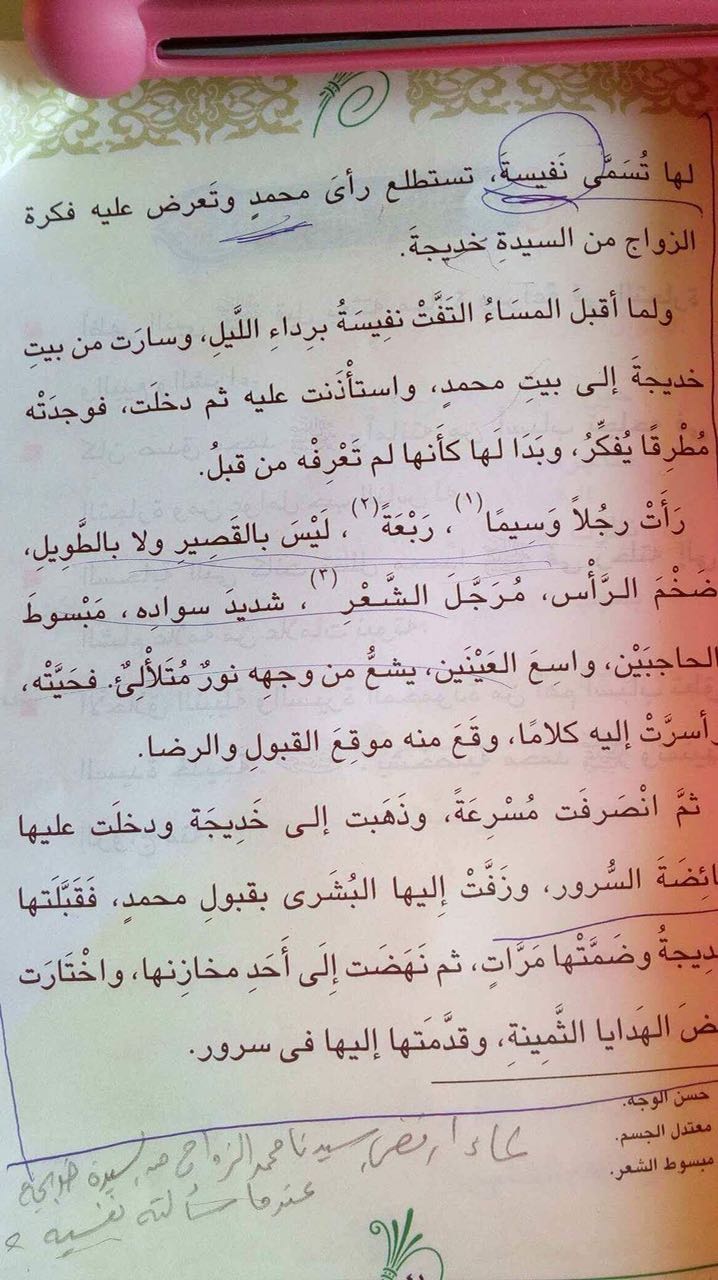 لها تُسَمَّى نَفيسةَ، تستطلع رأىَ محمدٍ وتَعرض عليه فكرة
الزواج من السيدةِ خديجةَ.
ولما أقبلَ المسَاءُ التَفَّتْ نفِيسَةُ برداءِ اللَّيلِ، وسارَت من بيتِ
خديجةَ إلى بيتِ محمدٍ، واستأْذَنت عليه ثم دخلَت، فوجدَتْه
مُطْرِقًا يُفكِّرُ، وبَدَا لَها كأَنها لم تَعْرِفْه من قبلُ.
رَأَتْ رجُلاً وَسِيمًا(١)، رَبْعَةً(٢)، لَيْسَ بالقَصِيرِ ولا بالطَّوِيلِ،
ضَخْمَ الرَّأْس، مُرَجَّلَ الشَّعْرِ(٣)، شديدَ سوادِه، مَبْسُوطَ
الحاجبَيْن، واسِعَ العَيْنَين، يشعُّ من وجهه نورٌ مُتَلأْلِئٌ. فحَيَّتْه،
أسرَّتْ إليه كلامًا، وقَعَ منه موقِعَ القبولِ والرضا.
ثمَّ انْصَرفَت مُسْرِعَةً، وذَهَبت إلى خَدِيجَة ودخلَت عليها
ائِضَةَ السُّرور، وزَفَّتْ إِليها البُشَرى بقبولِ محمدٍ، فَقَبَّلَتها
ديجةُ وضَمَّتْها مَرَّاتٍ، ثم نَهَضَت إِلَى أَحَدِ مخازِنها، واخْتَارَت
ضَ الهَدايا الثَّمِينةِ، وقدَّمَتها إليها فى سرور.
حسن الوجه.
معتدل الجسم.
مبسوط الشعر.
سيدنا محمد الزواج من السيدة خديجة
عندما سألته نفيسه
٤١